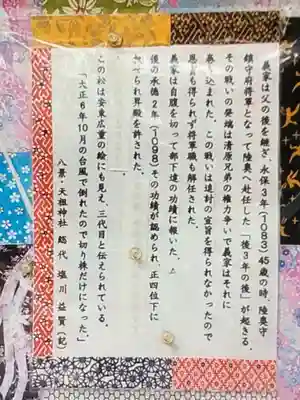 義家は父の後を継ぎ、永保3年(1083)45歳の時、陸奥守
鎮守府将軍となって陸奥へ赴任した「後3年の役」が起きる。
その戦いの発端は清原兄弟の権力争いで義家はそれに
巻き込まれた。この戦いは追討の宣旨を得られなかったので
恩賞も得られず将軍職も解任された。
義家は自腹を切って部下達の功績に報いた。
後の承徳2年(1098)その功績が認められ、正四位下に
られ昇殿を許された。
この松は安東広重の絵にも見え、三代目と伝えられている。
「大正6年10月の台風で倒れたので切り株だけになった。」
八景・天祖神社 総代 塩川 益賢(記)